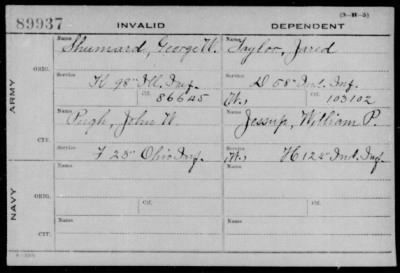 (3-H-5)
89937 INVALID DEPENDENT
Name Name
Shumard, George W. Taylor, Jared
ORIG.
Service Service
K 98" Ill. Inf. D 58" Ind. Inf.
Ctf. Ctf.
86645 (W.) 103102
ARMY
Name Name
Pugh, John W. Jessup, William P.
CTF.
Service Service
F 25" Ohio Inf. (W.) H 124" Ind. Inf.
Name Name
ORIG.
Service Service
Ctf. Ctf.
NAVY
Name Name
CTF.
Service Service